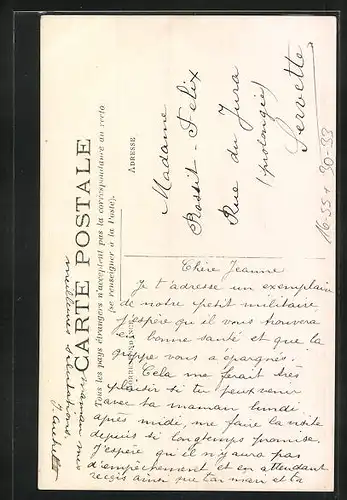 CARTE POSTALE
Tous les pays étrangers n'acceptent pas la correspondance au recto
(se renseigner à la Poste).
CORRESPONDANCE
ADRESSE
Madame
Rossit - Felix
Rue du Jura
(prolongée)
Servette
16-551 30-33
Chère Jeanne
Je t'adresse un exemplaire
de notre petit militaire,
j'espère qu'il vous trouvera
en bonne santé et que la
grippe vous a épargnés.
Cela me ferait très
plaisir si tu peux venir
avec ta maman lundi
après midi, me faire la visite
depuis si longtemps promise.
J'espère qu'il n'y aura pas
d'empêchement et en attendant
reçois ainsi que ta maman et la
meilleures salutations